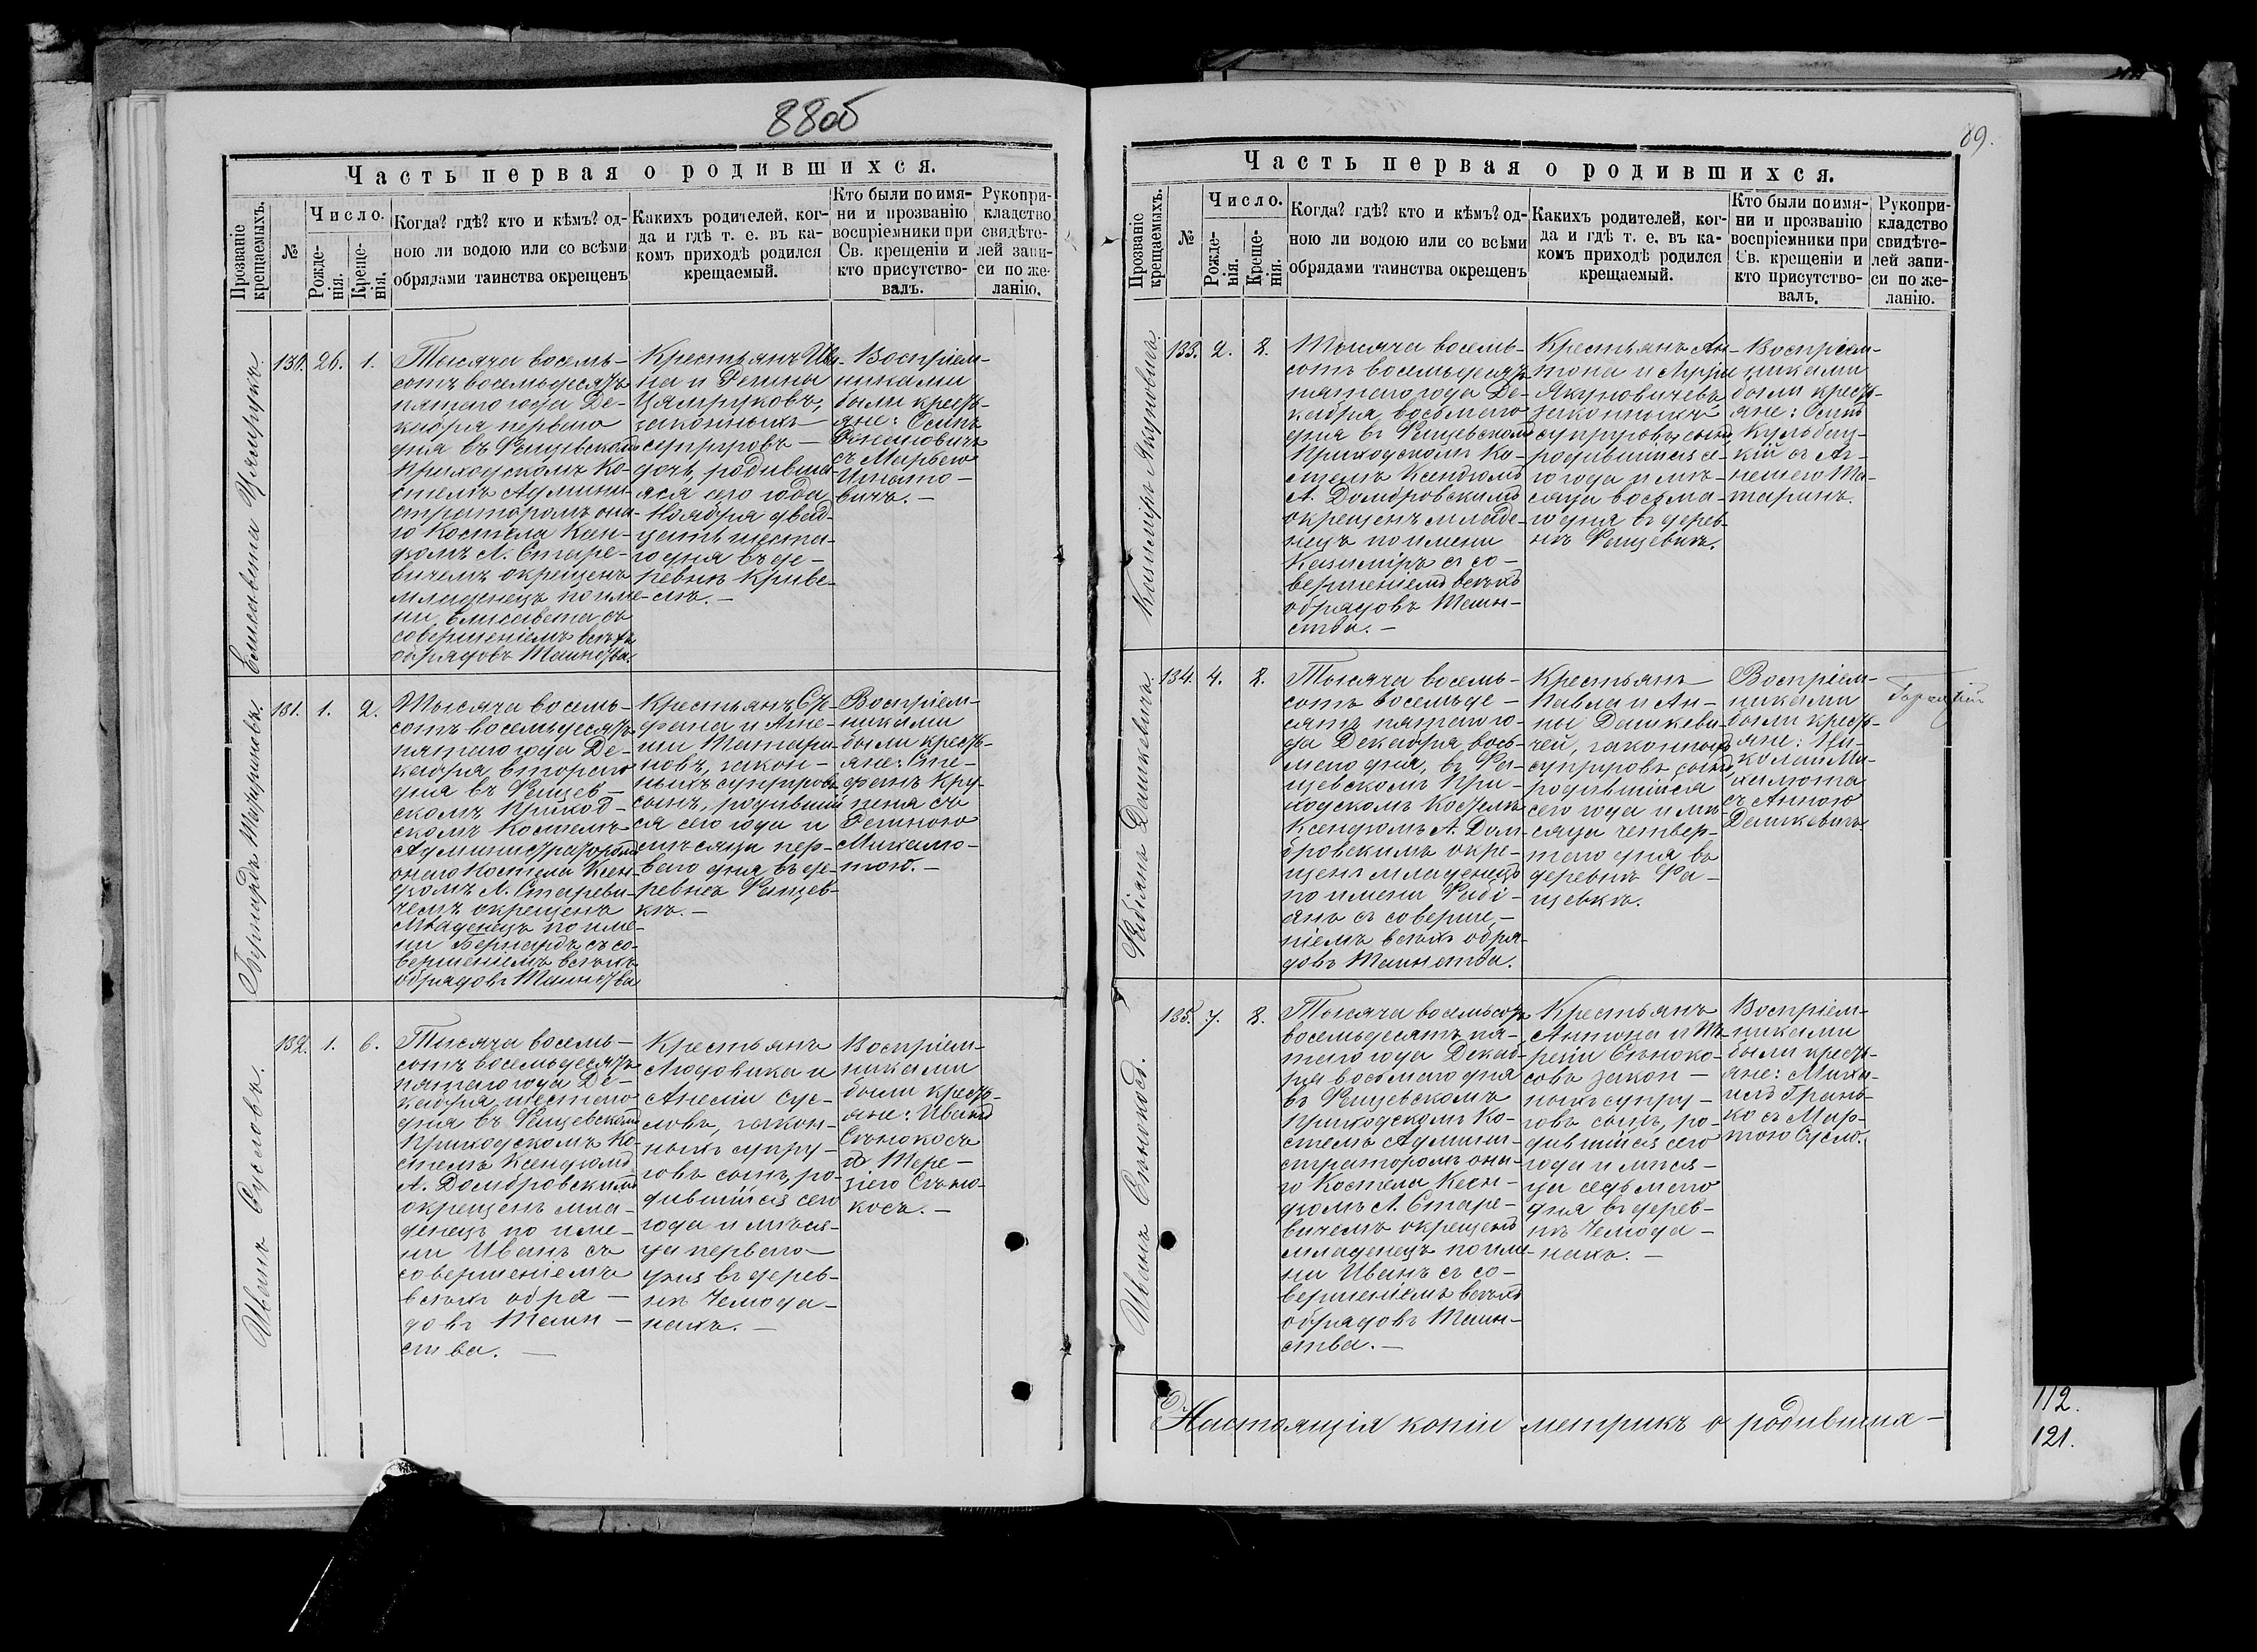 88об
Часть первая о родившихся.
Прозваніе крещаемыхъ.
№
Число.
Рожде-
нія.
Креще-
нія.
Когда? гдѣ? кто и кѣмъ? од-
ною ли водою или со всѣми
обрядами таинства окрещенъ
Какихъ родителей, ког-
да и гдѣ т. е. въ ка-
комъ приходѣ родился
крещаемый.
Кто были по имя-
ни и прозванію
воспріемники при
Св. крещеніи и
кто присутство-
валъ.
Рукопри-
кладство
свидѣте-
лей запи-
си по же-
ланію.
Елисавета
130. 26. 1.
Тысяча восемь-
сотъ восемьдесятъ
пятаго года Де-
кабря перваго
дня въ Фащевскомъ
Приходскомъ Ко-
стелѣ Админи-
страторомъ она-
го Костела Ксен-
дзомъ Л. Старе-
вичемъ окрещенъ
младенецъ по име-
ни Елисавета, съ
совершеніемъ всѣхъ
обрядовъ Таинства.
Крестьянъ Ива-
на и
законныхъ
супруговъ —
дочь, родивша-
яся сего года
Ноября двад-
цать шеста-
го дня въ де-
ревнѣ Криве-
лѣ. —
Воспріем-
никами
были кресть-
яне: Осипъ
съ Марьею
Игнато-
вичъ. —
Бернардъ
131. 1. 2.
Тысяча восемь-
сотъ восемьдесятъ
пятаго года Де-
кабря втораго
дня въ Фащев-
скомъ Приход-
скомъ Костелѣ
Администраторомъ
онаго Костела Ксен-
дзомъ Л. Стареви-
чемъ окрещенъ
младенецъ по име-
ни Бернардъ, съ со-
вершеніемъ всѣхъ
обрядовъ Таинства
Крестьянъ Сте-
фана и Агне-
ши Татари-
новъ, закон-
ныхъ супруговъ
сынъ, родившій-
ся сего года и
мѣсяца пер-
ваго дня въ де-
ревнѣ Фащев-
кѣ. —
Воспріем-
никами
были кресть-
яне: Сте-
фанъ Кру-
пеня съ
Региною
Михалю-
тою. —
Иванъ Сусловъ.
132. 1. 6.
Тысяча восемь-
сотъ восемьдесятъ
пятаго года Де-
кабря шестаго
дня въ Фащевскомъ
Приходскомъ Ко-
стелѣ Ксендзомъ
А. Домбровскимъ
окрещенъ мла-
денецъ по име-
ни Иванъ съ
совершеніемъ
всѣхъ обря-
довъ Таин-
ства. —
Крестьянъ
Людовика и
Анеліи Сус-
ловъ, закон-
ныхъ супру-
говъ сынъ, ро-
дившійся сего
года и мѣся-
ца перваго
дня въ дерев-
нѣ Чемода-
нахъ. —
Воспріем-
никами
были кресть-
яне: Иванъ
Сѣнокосъ
съ Тере-
зіею Сѣно-
косъ. —
89.
Часть первая о родившихся.
Прозваніе
крещаемыхъ.
№
Число.
Рожде-
нія.
Креще-
нія.
Когда? гдѣ? кто и кѣмъ? од-
ною ли водою или со всѣми
обрядами таинства окрещенъ
Какихъ родителей, ког-
да и гдѣ т. е. въ ка-
комъ приходѣ родился
крещаемый.
Кто были по имя-
ни и прозванію
воспріемники при
Св. крещеніи и
кто присутство-
валъ.
Рукопри-
кладство
свидѣте-
лей запи-
си по же-
ланію.
Казиміръ Якуновичъ
133. 2. 8.
Тысяча восемь-
сотъ восемьдесятъ
пятаго года Де-
кабря восьмаго
дня въ Фащевскомъ
Приходскомъ Ко-
стелѣ Ксендзомъ
А. Домбровскимъ
окрещенъ младе-
нецъ по имени
Казиміръ съ со-
вершеніемъ всѣхъ
обрядовъ Таин-
ства. —
Крестьянъ Ан-
тона и
Якуновичевъ
законныхъ
супруговъ сынъ,
родившійся се-
го года и мѣ-
сяца
дня въ дерев-
нѣ Фащевкѣ.
Воспріем-
никами
были кресть-
яне:
Кульбиц-
кій съ Аг-
нешею Та-
таринъ.
Фабіанъ Дашкевичъ.
134. 4. 8.
Тысяча восемь-
сотъ восемьде-
сятъ пятаго го-
да Декабря вось-
маго дня, въ Фа-
щевскомъ При-
ходскомъ Костелѣ
Ксендзомъ А. Дом-
бровскимъ окре-
щенъ младенецъ
по имени Фабі-
анъ съ соверше-
ніемъ всѣхъ обря-
довъ Таинства.
Крестьянъ
Павла и Ан-
ны Дашкеви-
чей, законныхъ
супруговъ сынъ,
родившійся
сего года и мѣ-
сяца четвер-
таго дня въ
деревнѣ Фа-
щевкѣ.
Воспріем-
никами
были кресть-
яне: Ни-
колай Ми-
халюта
съ Анною
Дашкевичъ
Иванъ Сѣнокосъ.
135. 7. 8.
Тысяча восемьсотъ
восемьдесятъ пя-
таго года Декаб-
ря восьмаго дня
въ Фащевскомъ
Приходскомъ Ко-
стелѣ Админи-
страторомъ она-
го Костела Ксен-
дзомъ Л. Старе-
вичемъ окрещенъ
младенецъ по име-
ни Иванъ съ со-
вершеніемъ всѣхъ
обрядовъ Таин-
ства. —
Крестьянъ
Антона и Те-
резіи Сѣноко-
совъ закон-
ныхъ супру-
говъ сынъ, ро-
дившійся сего
года и мѣся-
ца седьмаго
дня въ дерев-
нѣ Чемода-
нахъ. —
Воспріем-
никами
были кресть-
яне: Миха-
илъ Грань-
ко съ Мар-
тою Сусло.
Настоящія копіи метрикъ о родивших-
112.
121.